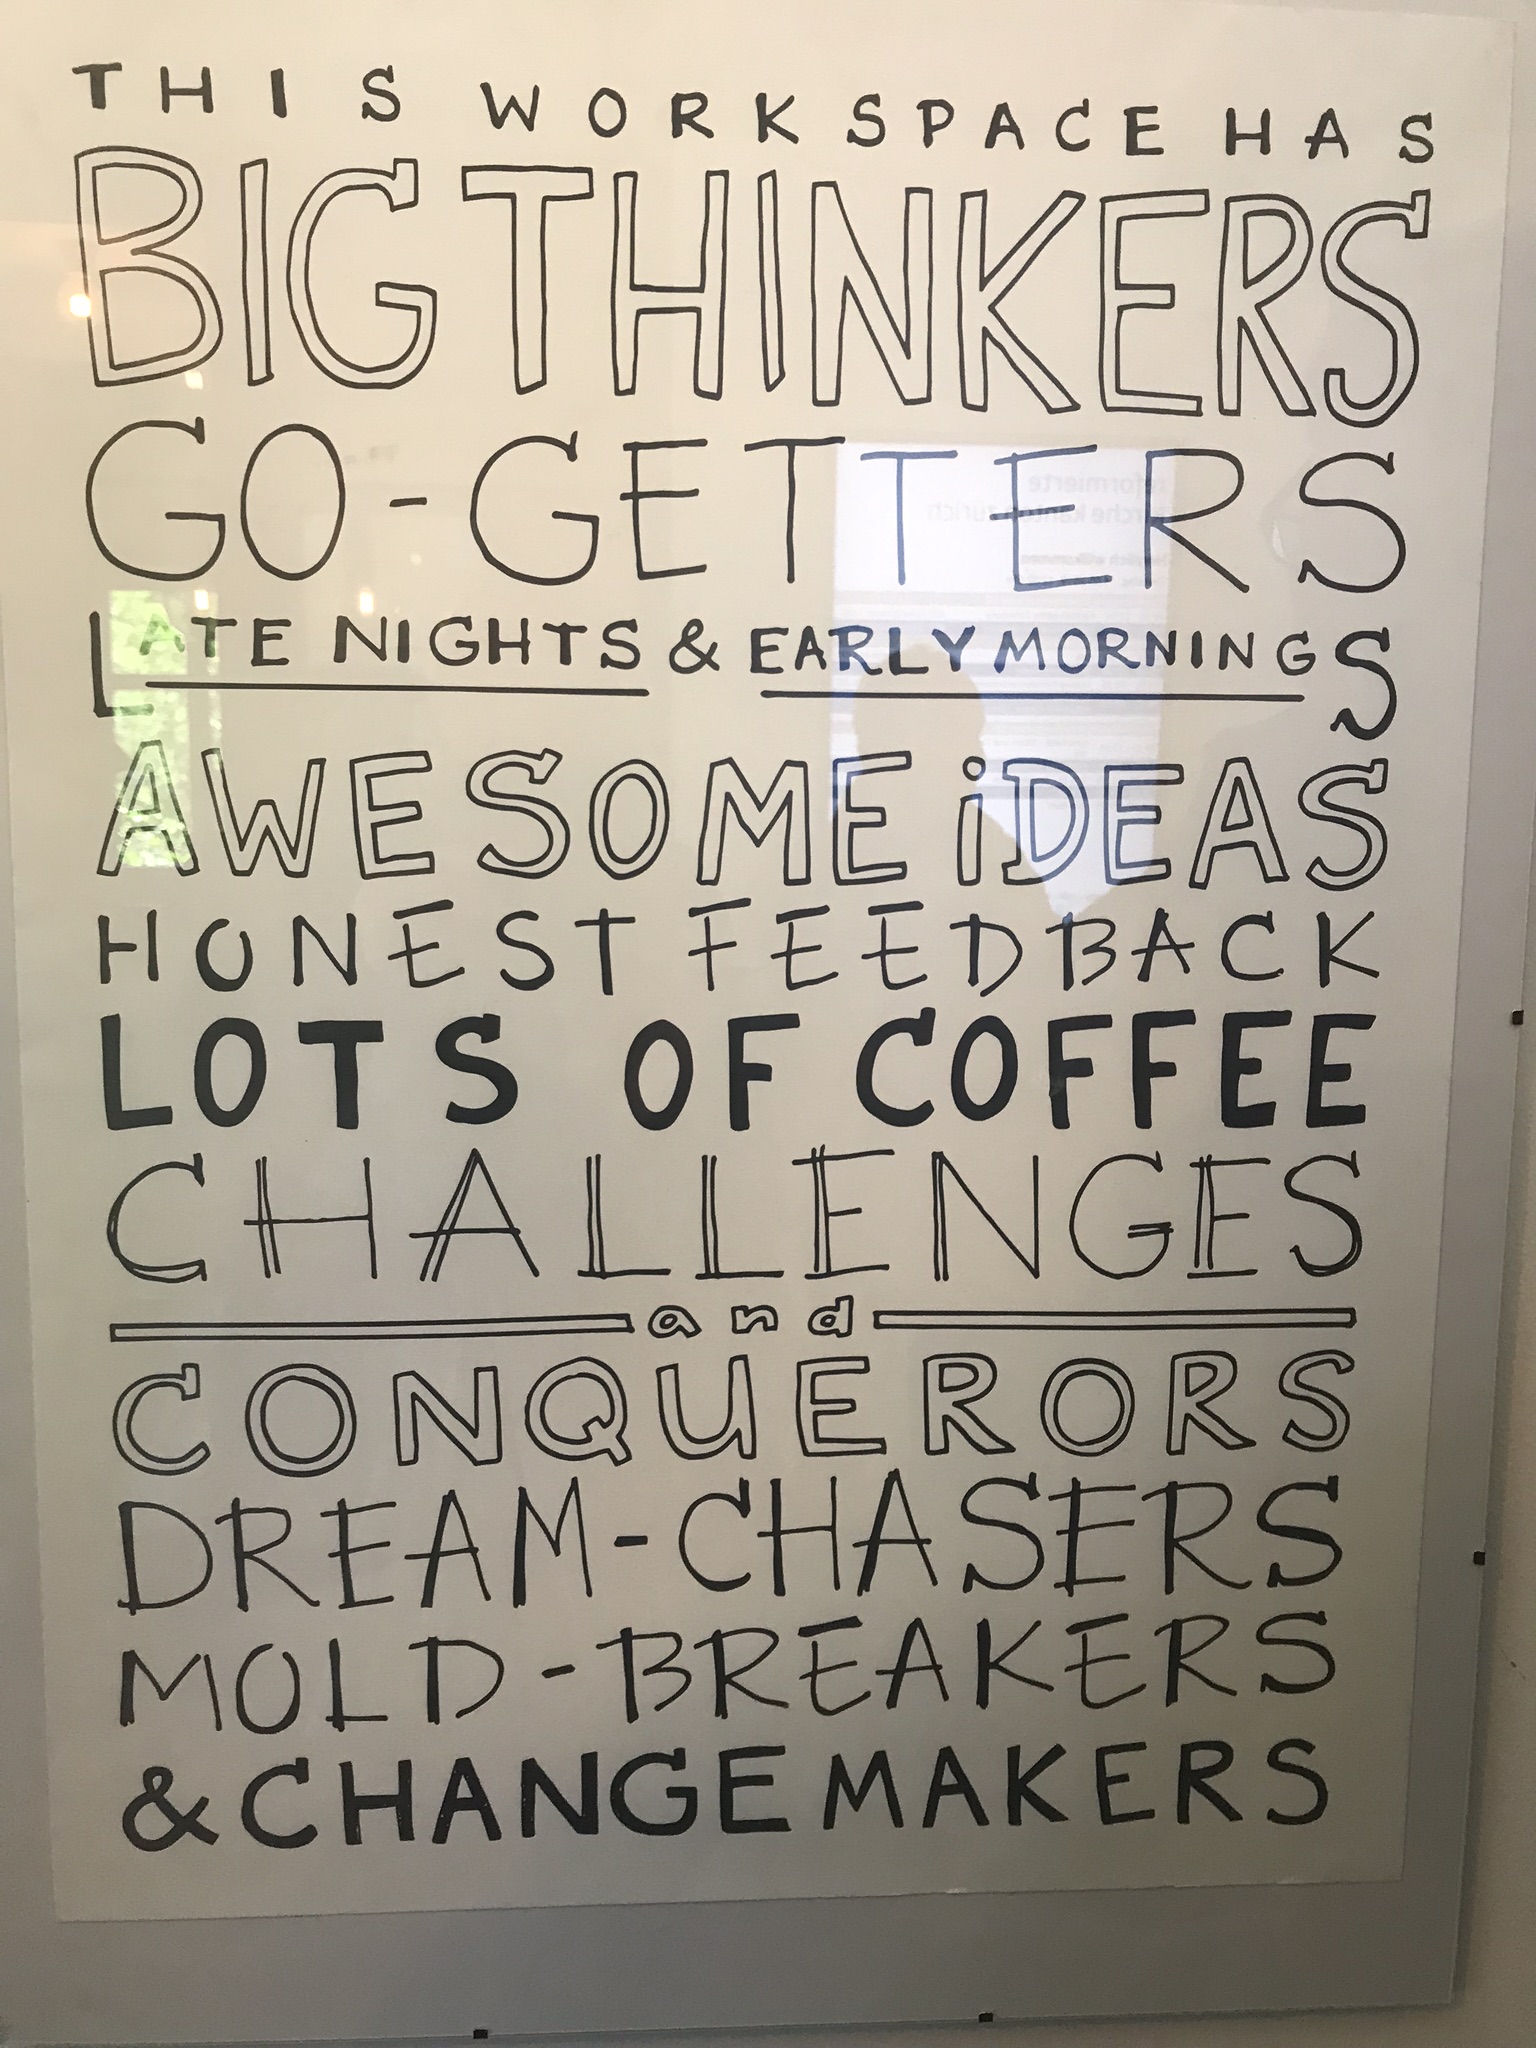 THIS WORKSPACE HAS
BIG THINKERS
GO-GETTERS
LATE NIGHTS & EARLY MORNINGS
AWESOME iDEAS
HONEST FEEDBACK
LOTS OF COFFEE
CHALLENGES
and
CONQUERORS
DREAM-CHASERS
MOLD-BREAKERS
& CHANGE MAKERS
reformierte
kirche kanton zürich